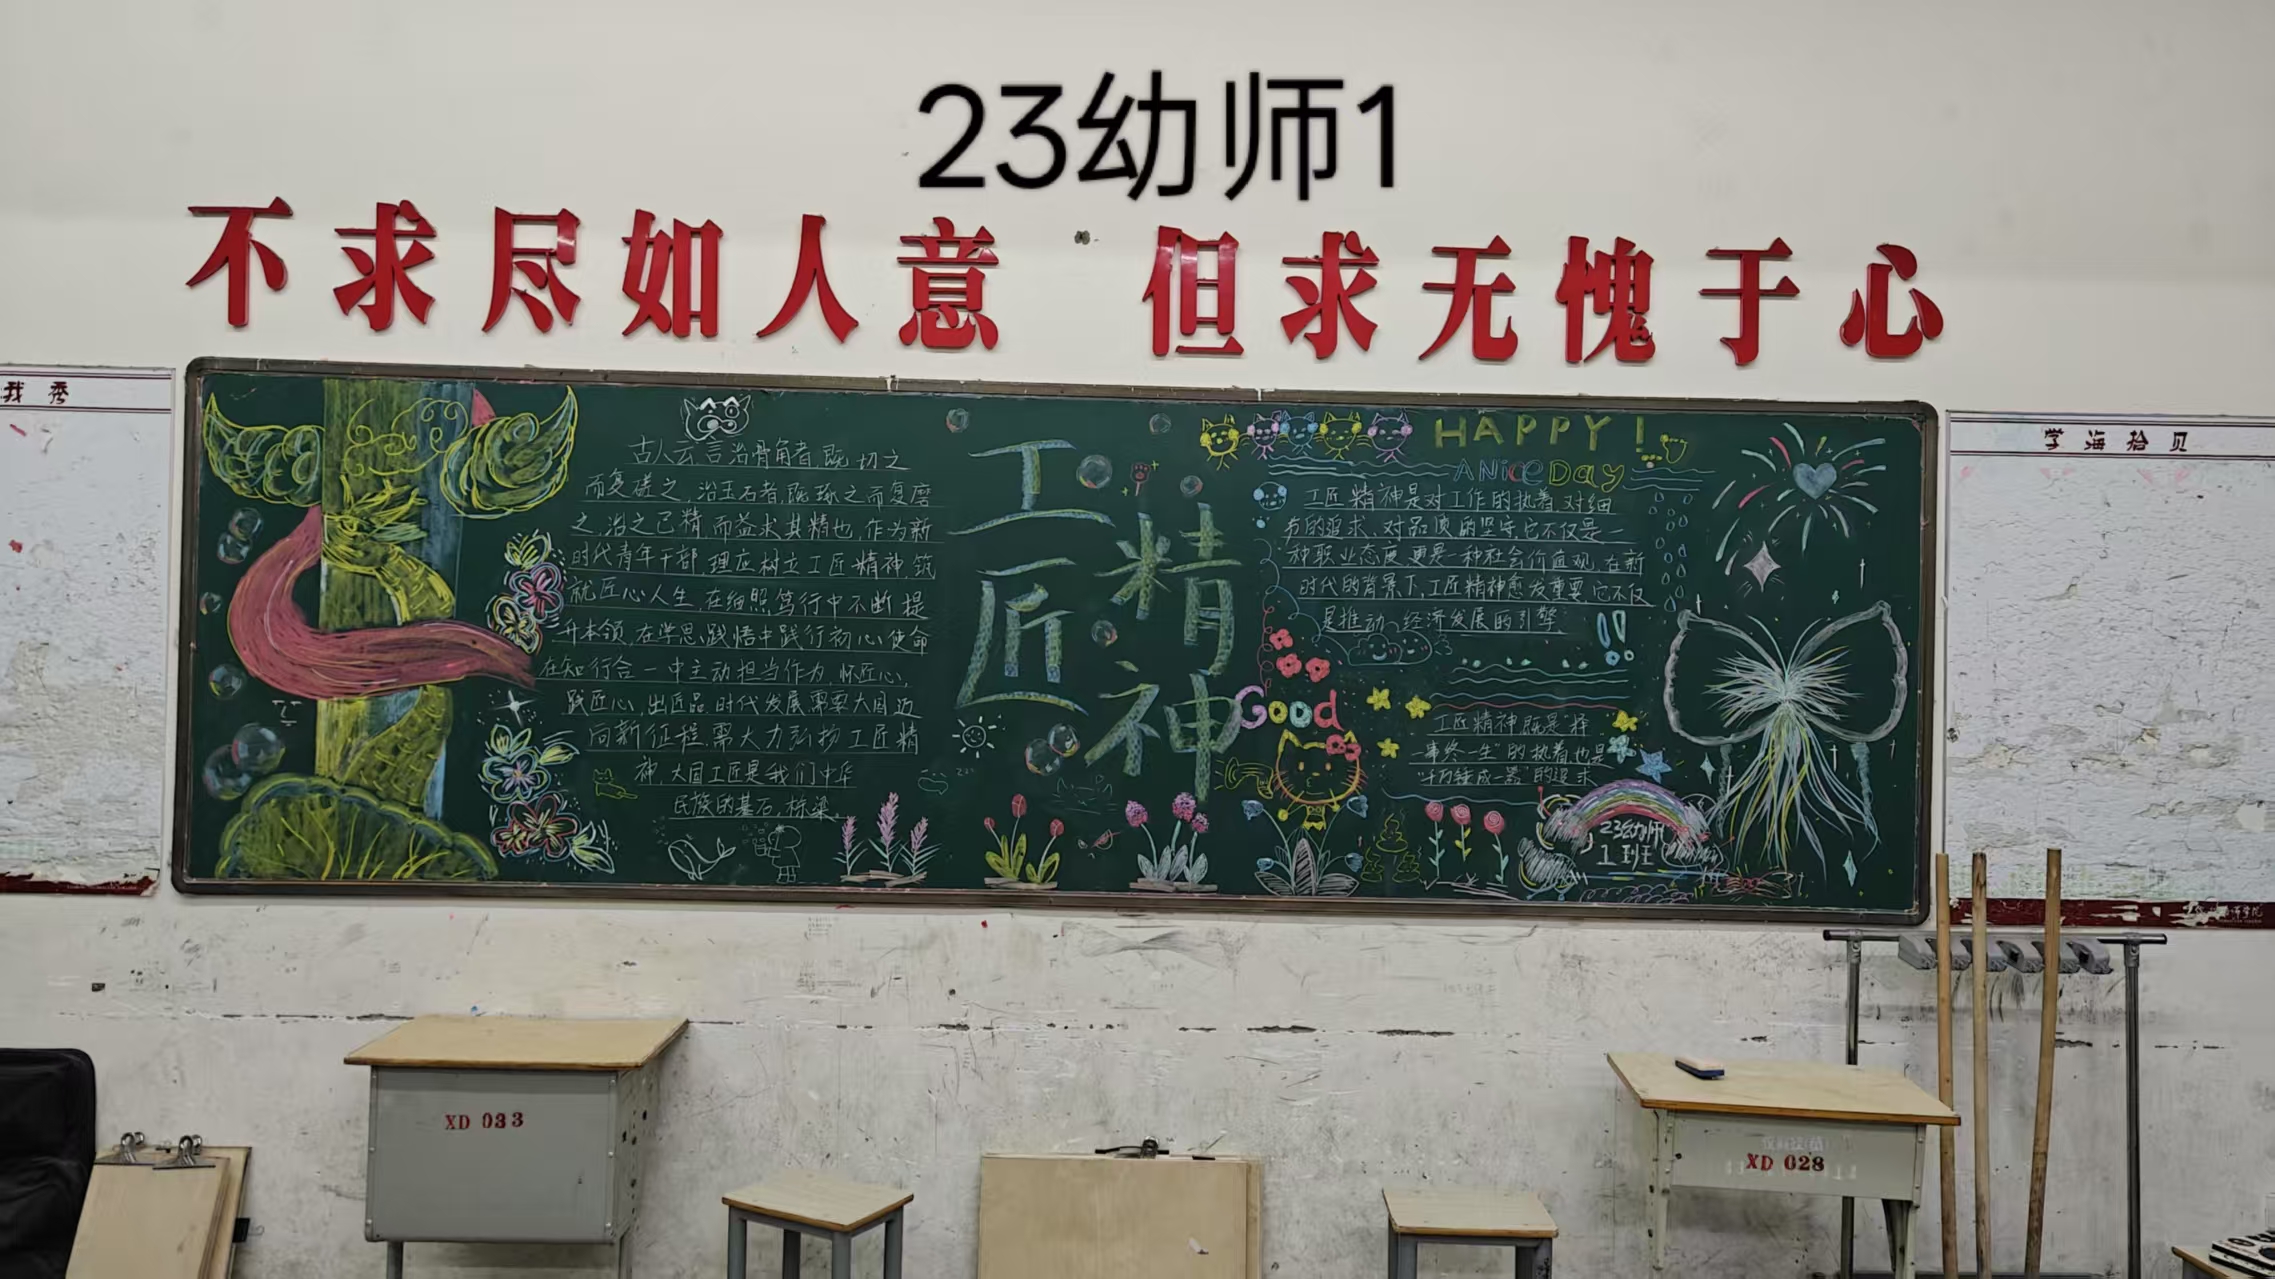 23幼师1
不求尽如人意 但求无愧于心
我秀
学海拾贝
古人云言治骨角者,既切之
而复磋之,治玉石者,既琢之而复磨
之,治之已精,而益求其精也,作为新
时代青年干部,理应树立工匠精神,筑
就匠心人生,在细照笃行中不断提
升本领,在学思践悟中践行初心使命
在知行合一中主动担当作为,怀匠心,
践匠心,出匠品,时代发展,需要大国迈
向新征程,需大力弘扬工匠精
神,大国工匠是我们中华
民族的基石,栋梁。
工匠
精神
HAPPY!
A Nice Day
工匠精神是对工作的执着,对细
节的追求,对品质的坚守,它不仅是一
种职业态度,更是一种社会价值观,在新
时代的背景下,工匠精神愈发重要,它不仅
是推动 经济发展的引擎
Good
工匠精神既是"择
一事终一生"的执着也是
"千万锤成一器"的追求
23幼师
1班
XD 033
XD 028